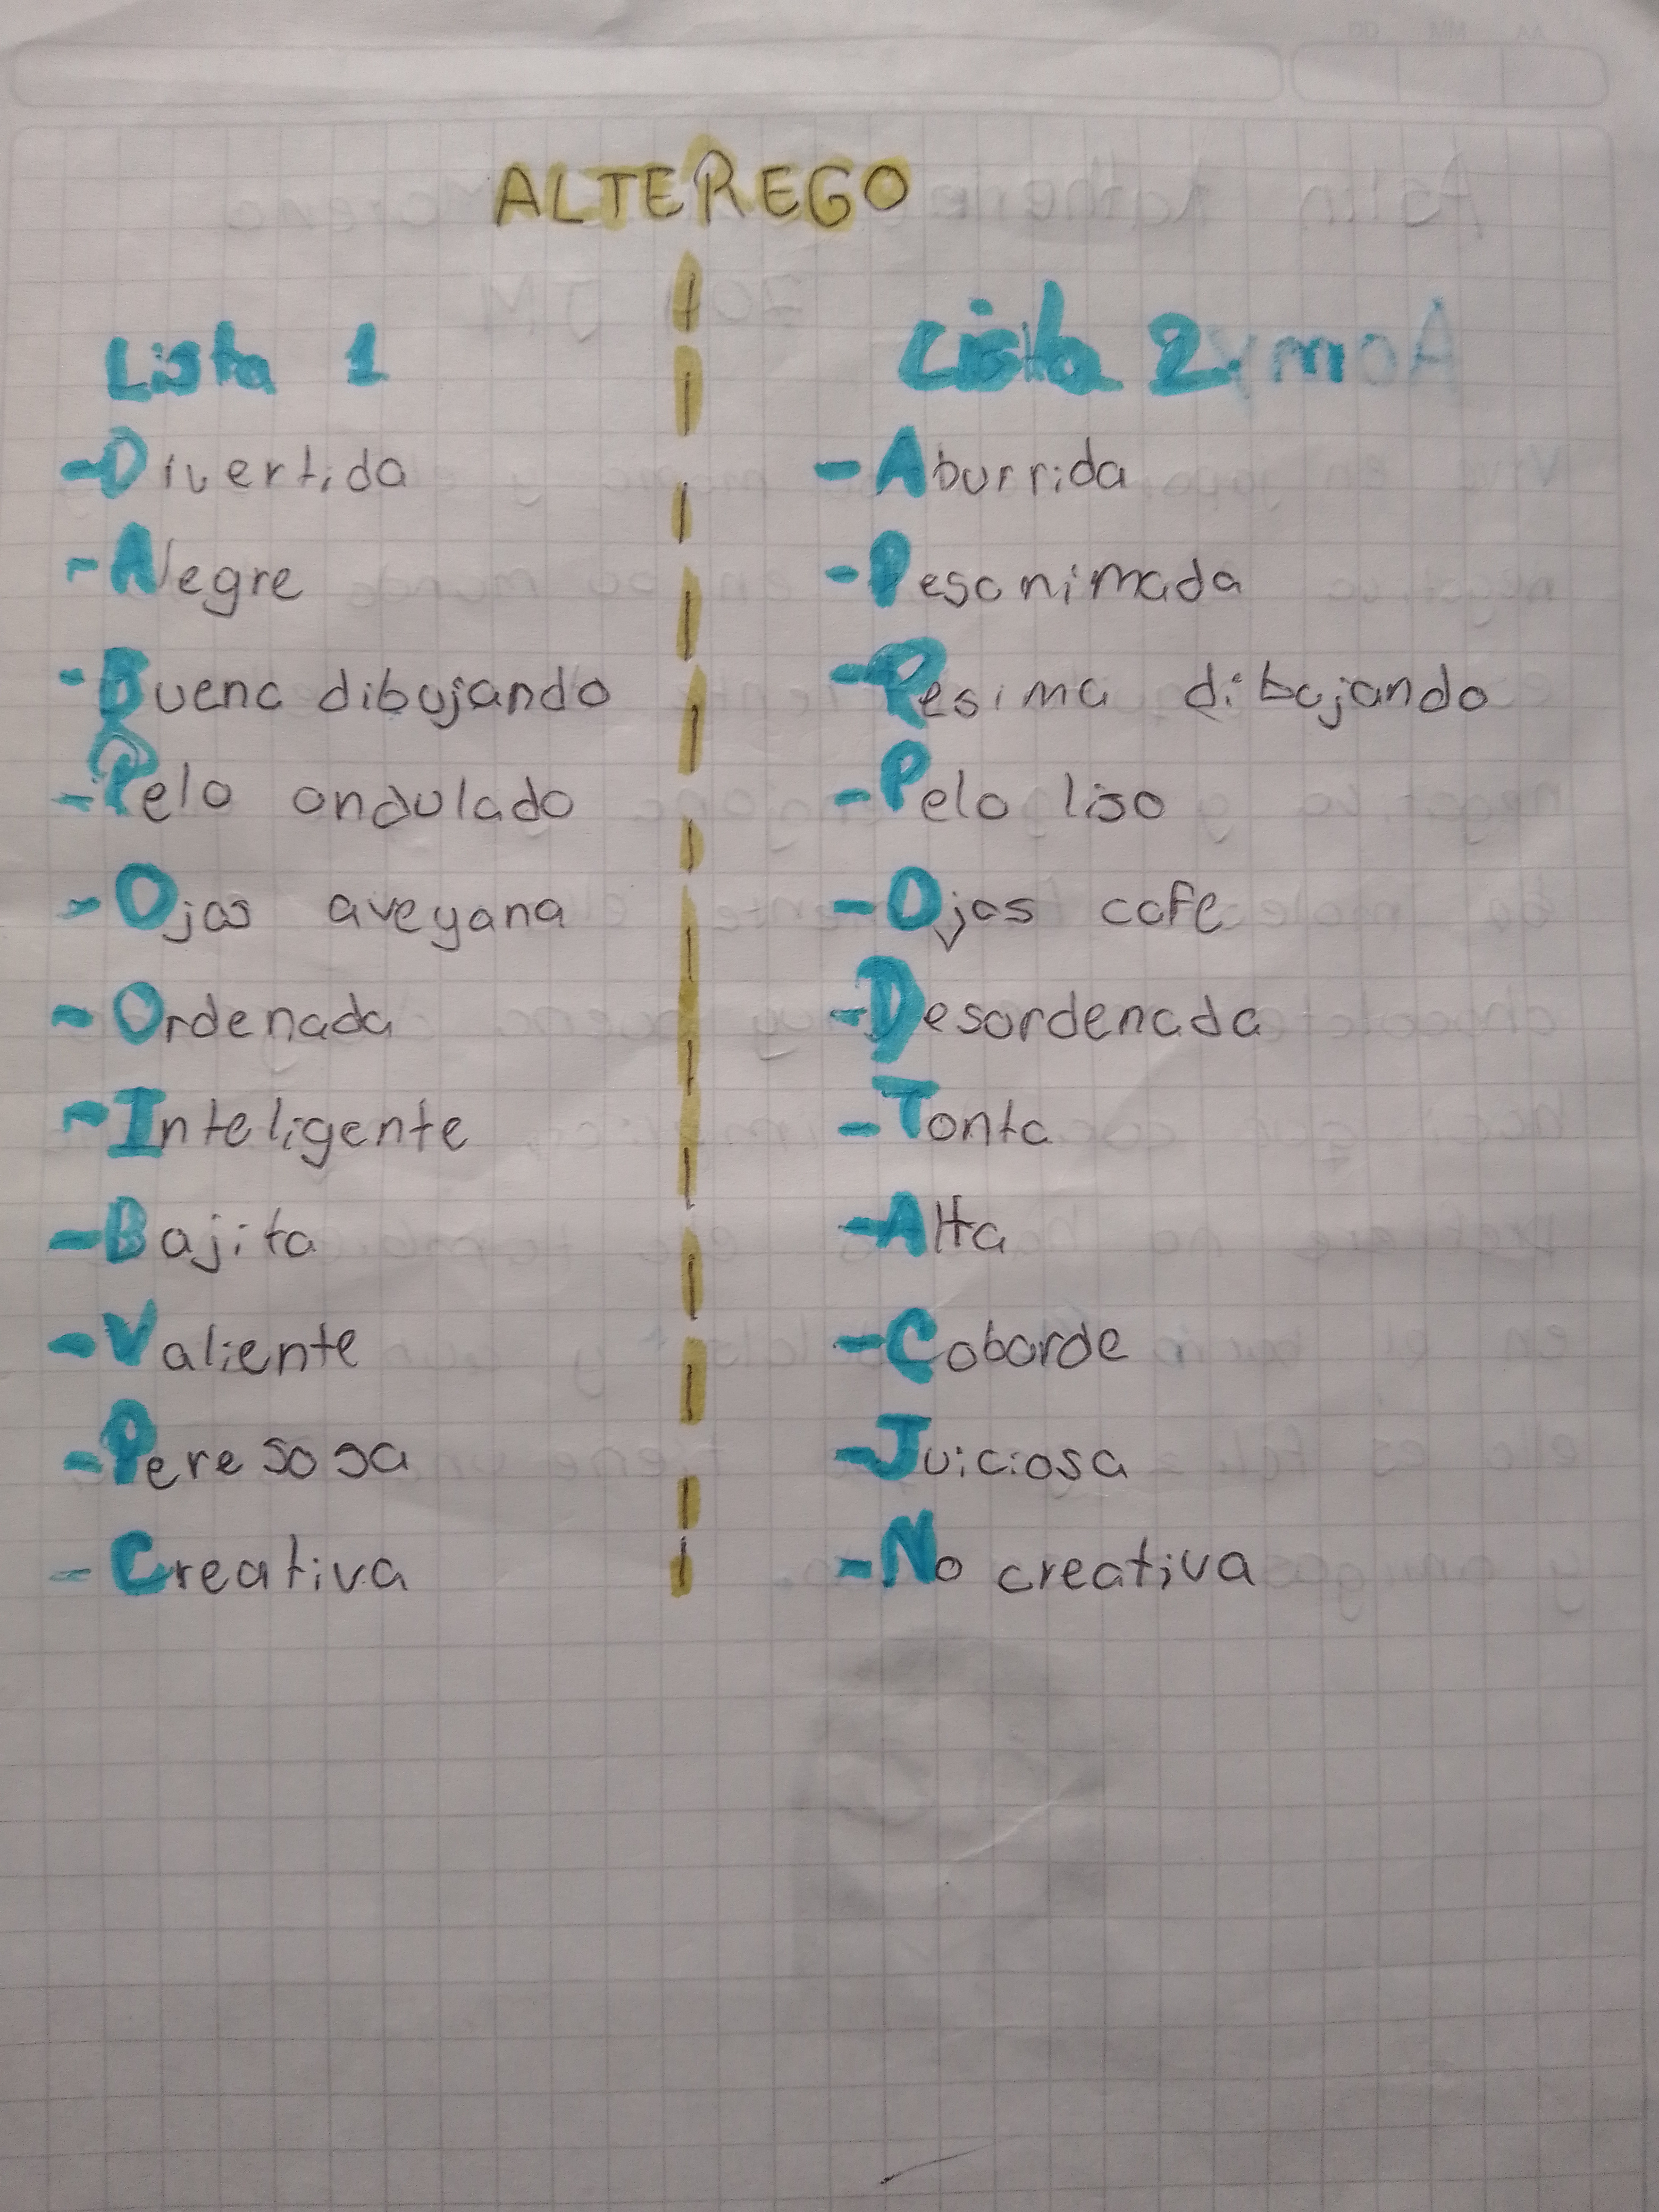 ALTEREGO
Lista 1
-Divertida
-Alegre
-Buena dibujando
-Pelo ondulado
-Ojos aveyana
-Ordenada
-Inteligente
-Bajita
-Valiente
-Peresosa
-Creativa
Lista 2.
-Aburrida
-Pesanimada
-Pesima dibujando
-Pelo liso
-Ojos cafe
-Desordenada
-Tonta
-Alta
-Cobarde
-Juiciosa
-No creativa